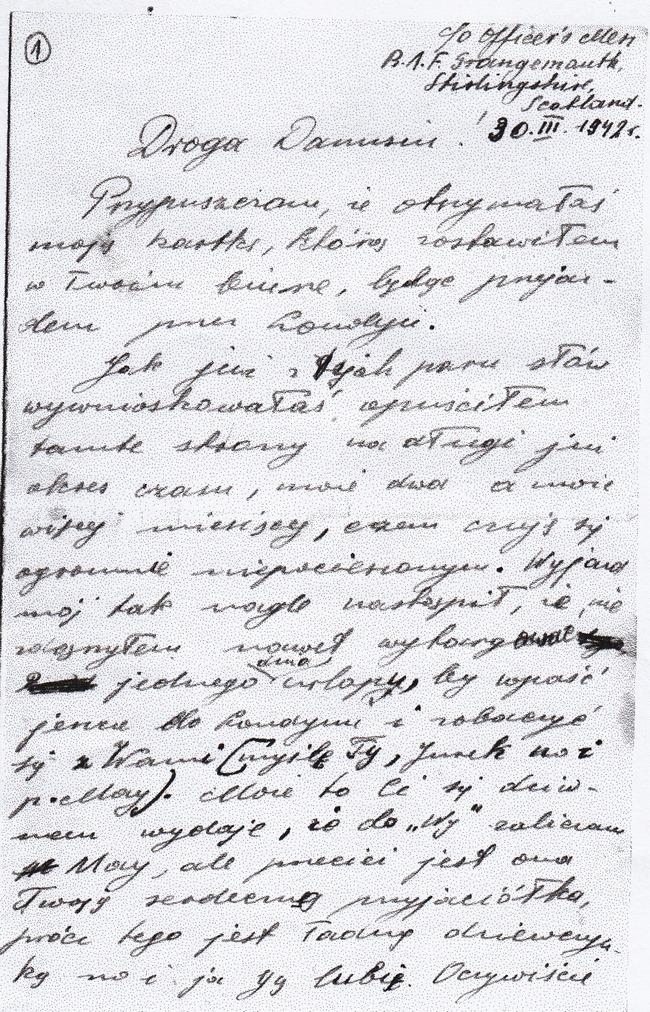 1
c/o Officer's Mess
R.A.F. Grangemouth,
Stirlingshire,
Scotland.
30.III.1942r.
Droga Danusiu!
Przypuszczam, że otrzymałaś
moją kartkę, którą zostawiłem
w Twoim biurze, będąc przejaz-
dem przez Londyn.
Jak już z tych paru słów
wywnioskowałaś opuściłem
tamte strony na długi już
okres czasu, może dwa a może
więcej miesięcy, czem czuję się
ogromnie niepocieszonym. Wyjazd
mój tak nagle nastąpił, że nie
zdążyłem nawet wykorzy
jednego dnia urlopu, by wpaść
jeszcze do Londynu i zobaczyć
się z Wami (myślę Ty, Jurek no i
p. May). Może to Ci się dziw-
nem wydaje, że do „Wy" zaliczam
May, ale przecież jest ona
Twoją serdeczną przyjaciółką,
prócz tego jest ładną dziewczyn-
ką no i ja ją lubię. Oczywiście